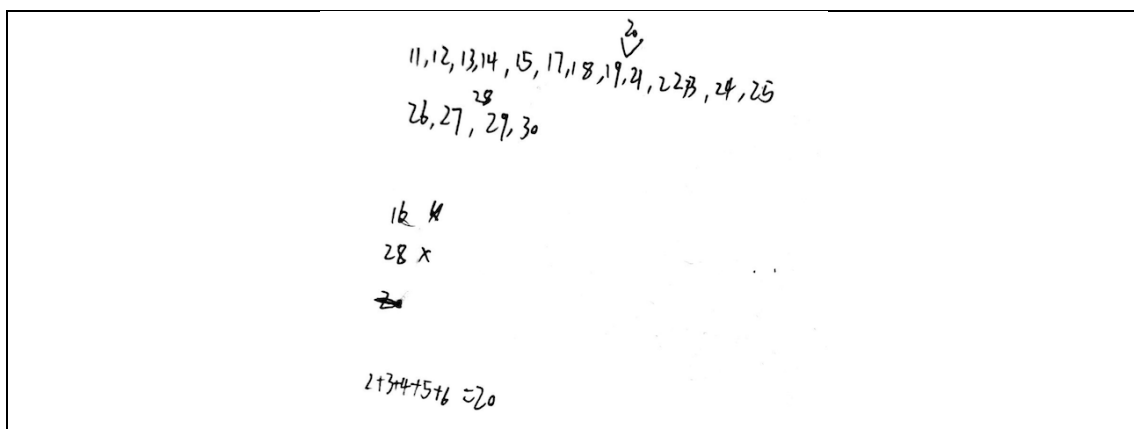 20
11,12,13,14,15,17,18,19,21,22,23,24,25
28
26,27,29,30
16
28 ×
2+3+4+5+6=20